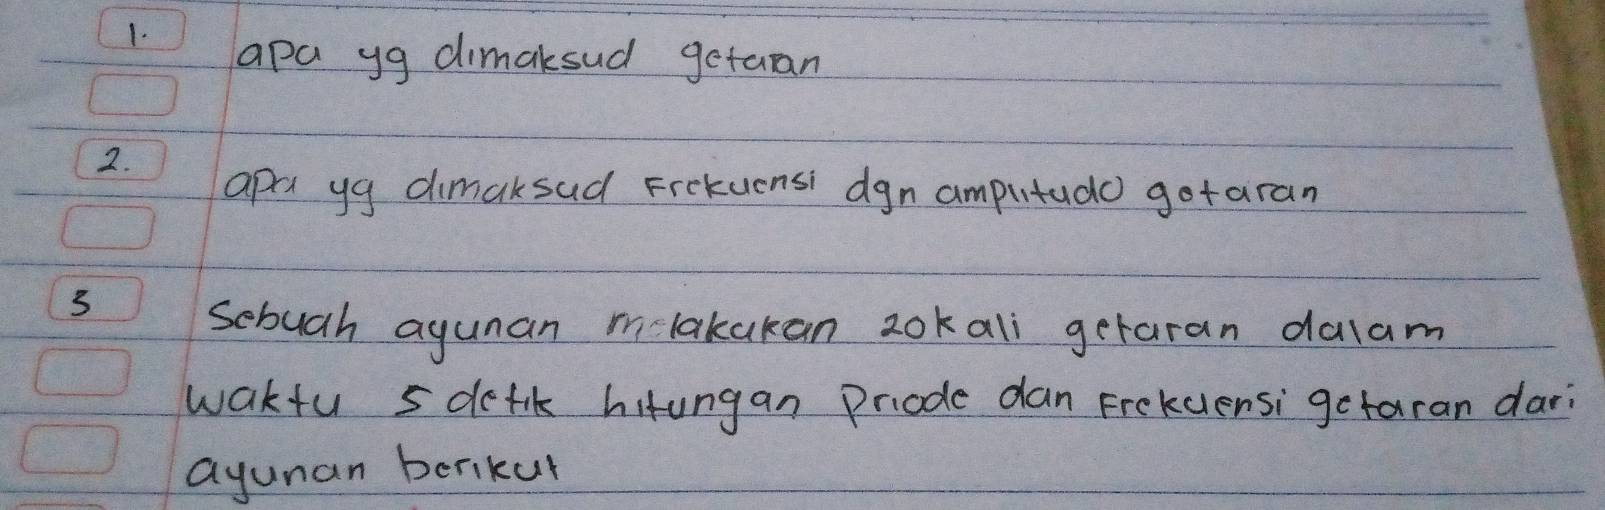 1. apa yg dimaksud getaran
2. apa yg dimaksud Frekuensi dgn amplitudo getaran
3 Sebuah ayunan melakukan 20kali getaran dalam
waktu 5 detik hitungan Priode dan Frekuensi getaran dari
ayunan berikut